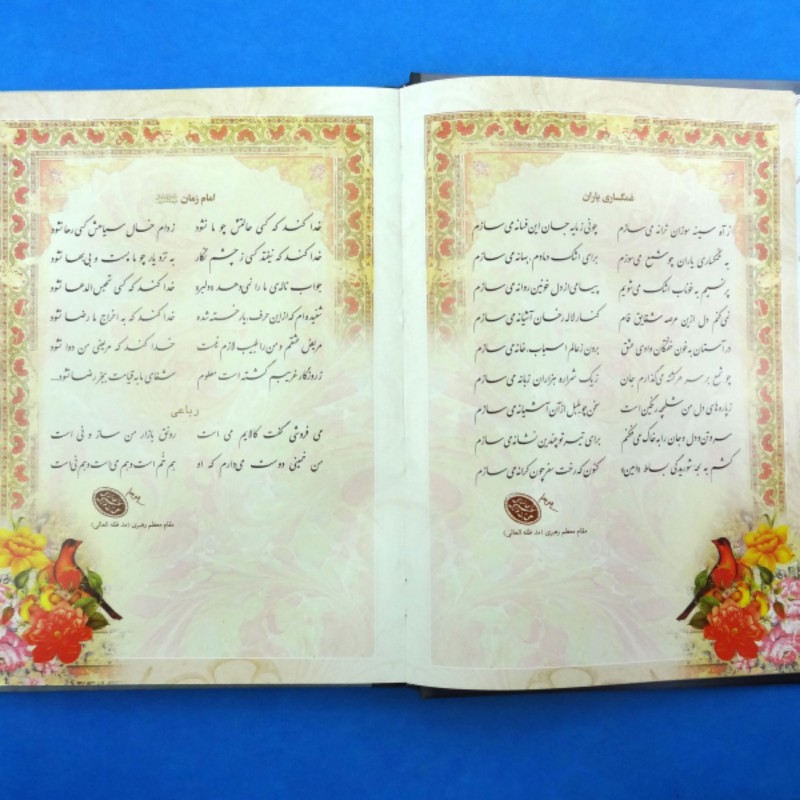 غمگساری یاران
ز آه سینه سوزان ترانه می سازم چونی ز مایه جان این فسانه می سازم
به غمگساری یاران چو شمع می سوزم برای اشک دمادم بهانه می سازم
پر نسیم به خوناب اشک می شویم پیامی از دل خونین روانه می سازم
نمی کنم دل ازین عرصه شقایق فام کنار لاله رخان آشیانه می سازم
در آستان به خون خفتگان وادی عشق برون ز عالم اسباب خانه می سازم
چو شمع بر سر هر کشته می گذارم جان ز یک شراره هزاران زبانه می سازم
ز پاره های دل من شلمچه رنگین است سخن چو بلبل از آن آشیانه می سازم
سر و تن و دل و جان را به خاک می فکنم برای تیر تو چندین نشانه می سازم
کشم به لجه شوریدگی بساط «امین» کنون که رخت سفر چون کرانه می سازم
مقام معظم رهبری (مد ظله العالی)
امام زمان
خدا کند که کسی حالتش چو ما نشود ز دام خال سیاهش کسی رها نشود
خدا کند که نیفتد کسی ز چشم نگار به نزد یار چو ما پست و بی بها نشود
جواب ناله ی ما را نمی دهد دلبر خدا کند که کسی تحبس الدعا نشود
شنیده ام که از این حرف، یار خسته شده خدا کند که به اخراج ما رضا نشود
مریض عشقم و من را طبیب لازم نیست خدا کند که مریضی من دوا نشود
ز روزگار غریبم گشته است معلوم شفای ما به قیامت بجز رضا نشود...
رباعی
می فروشی گفت کالایم می است رونق بازار من ساز و نی است
من خمینی دوست می دارم که او هم خُم است و هم می است و هم نی است
مقام معظم رهبری (مد ظله العالی)